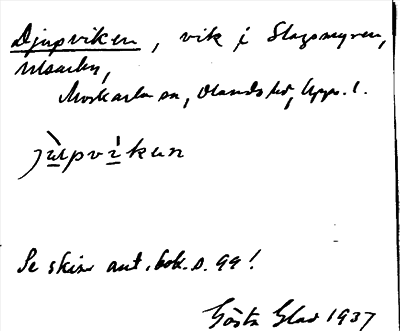 Djupviken, vik i Slagsmyren,
Ulvarby,
Morkarla sn, Olands hd, Upps. l.
jùpvìkun
Se skinn ant. bok. s. 99!
Gösta Glad 1937